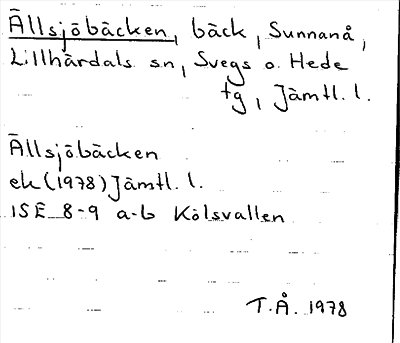 Ällsjöbäcken, bäck, Sunnanå,
Lillhärdals sn, Svegs o. Hede
tg, Jämtl. l.
Ällsjöbäcken
ek (1978) Jämtl. l.
15E 8-9 a-b Kölsvallen
T.Å. 1978